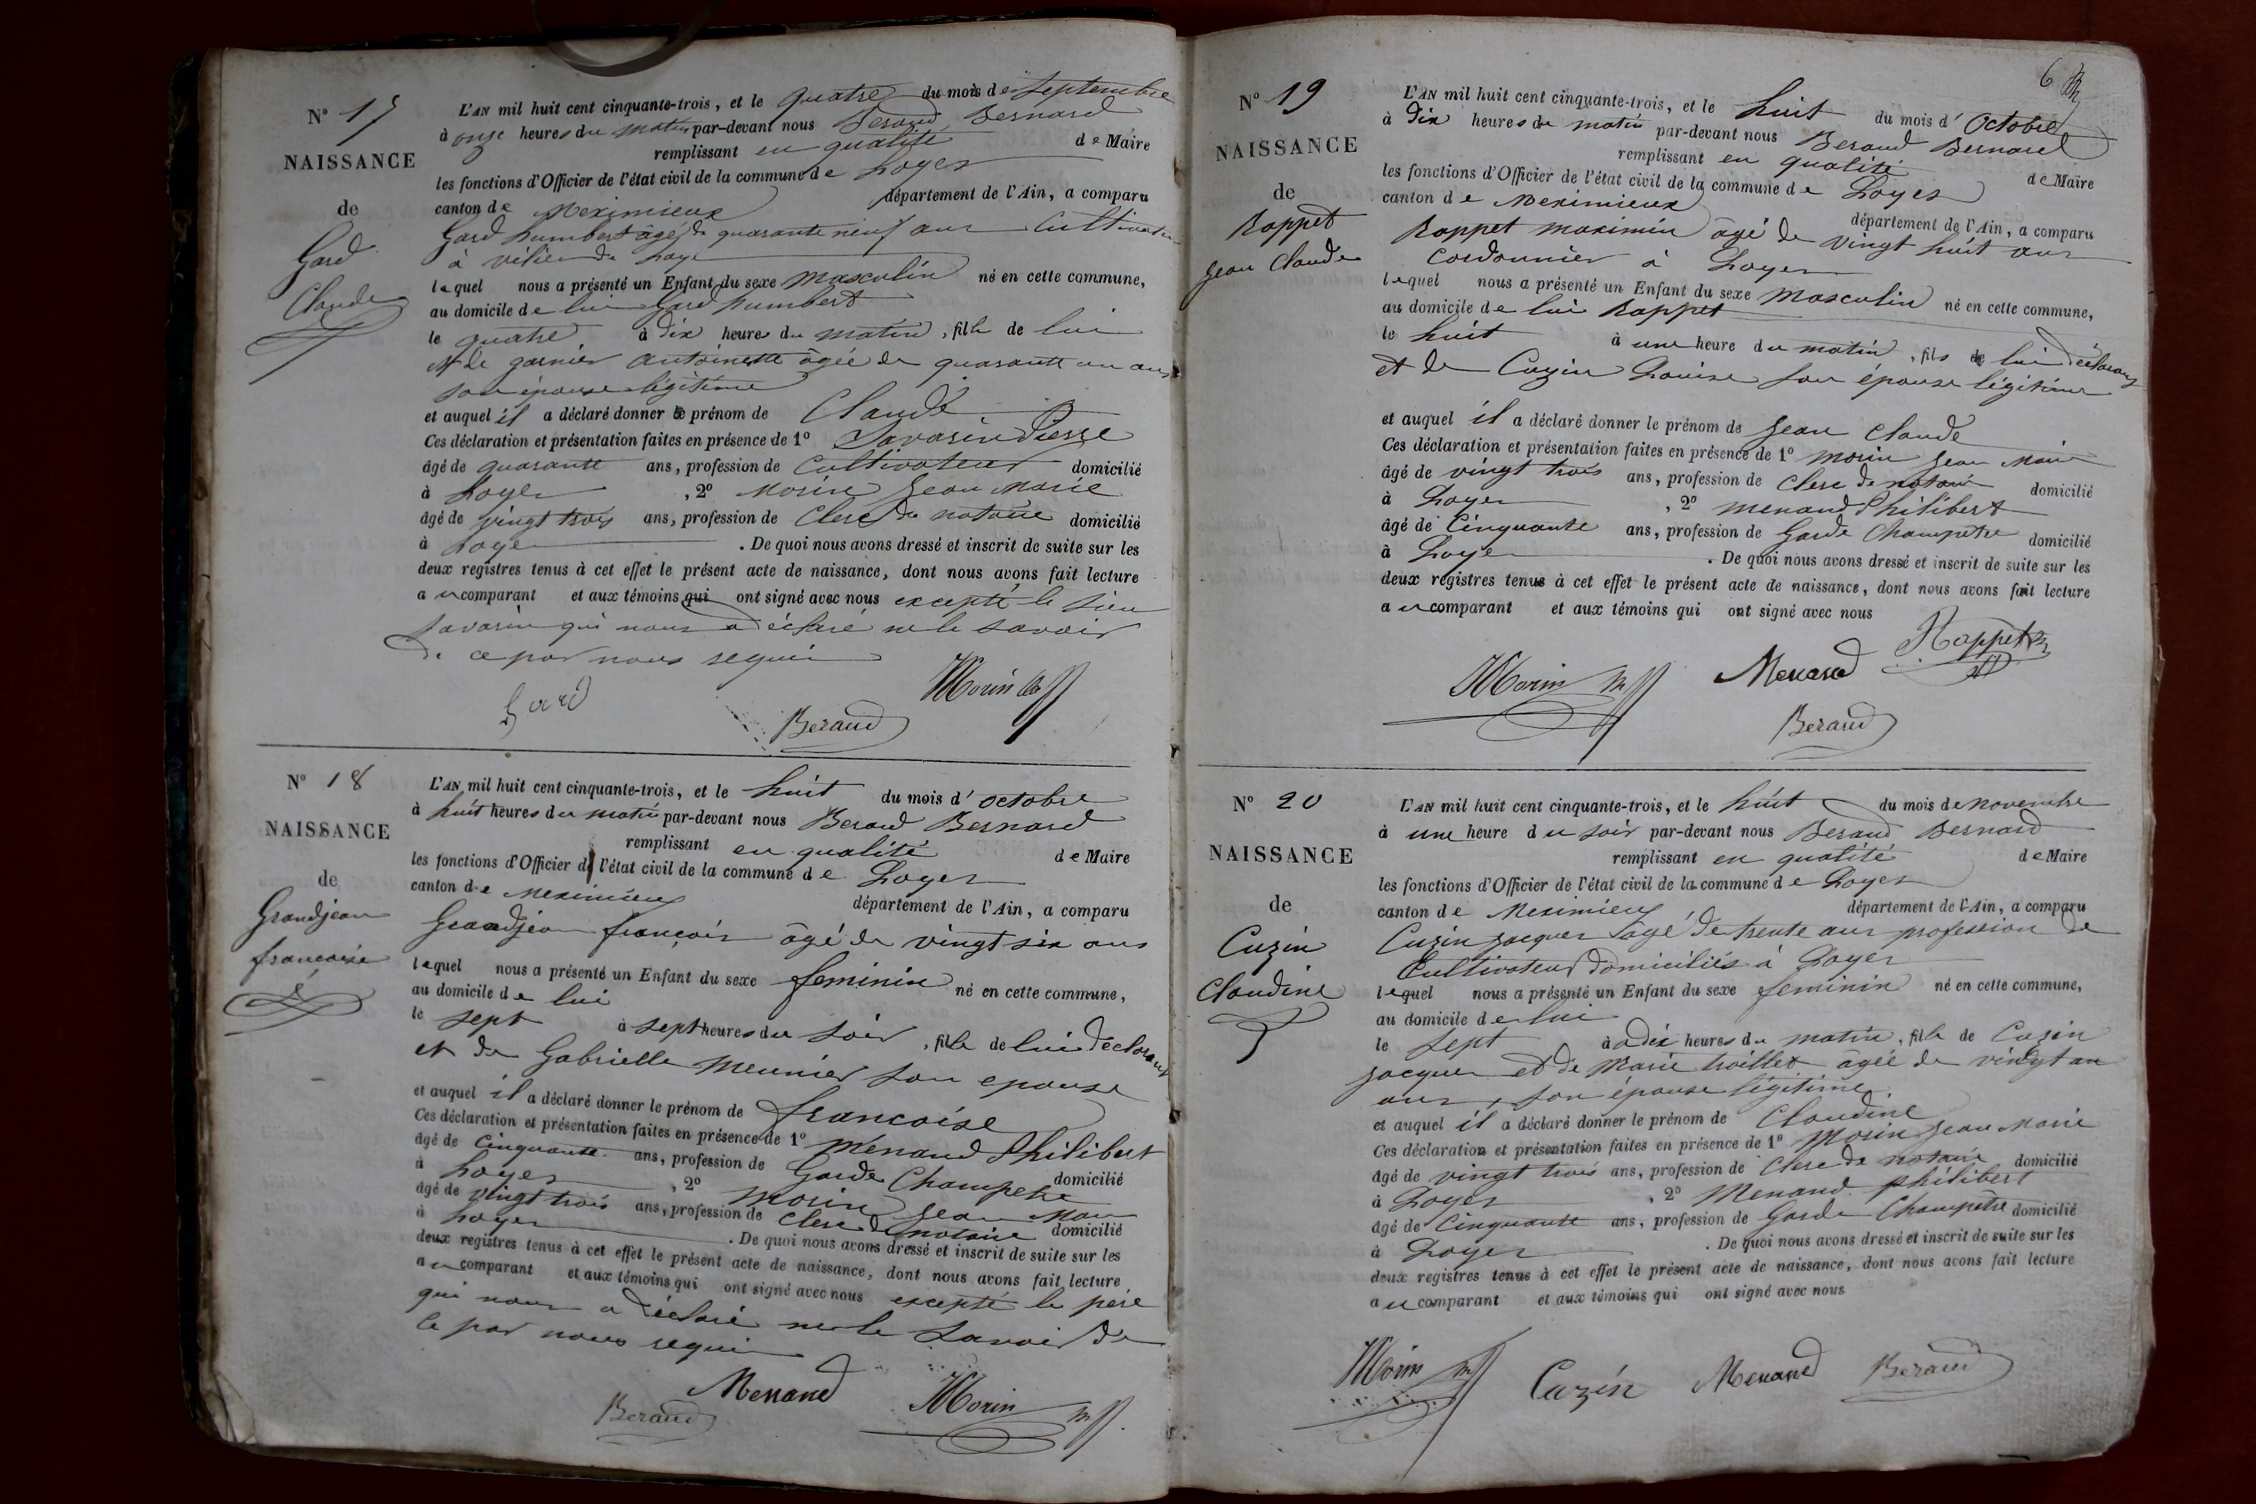 N° 17
NAISSANCE
de
Gard
Claude
L'AN mil huit cent cinquante-trois, et le quatre du mois de Septembre
à onze heures du matin par-devant nous Beraud Bernard
remplissant en qualité de Maire
les fonctions d'Officier de l'état civil de la commune de Loyes
canton de Meximieux département de l'Ain, a comparu
Gard humbert âgé de quarante neuf ans Cultivateur
à de Loye
lequel nous a présenté un Enfant du sexe masculin né en cette commune,
au domicile de lui Gard humbert
le quatre à dix heures du matin, fils de lui
et de garnier antoinette âgée de quarante un ans
son épouse légitime
et auquel il a déclaré donner le prénom de Claude
Ces déclaration et présentation faites en présence de 1° Savarin Pierre
âgé de quarante ans, profession de Cultivateur domicilié
à Loyes, 2° Morin Jean Marie
âgé de vingt trois ans, profession de Clerc de notaire domicilié
à Loye. De quoi nous avons dressé et inscrit de suite sur les
deux registres tenus à cet effet le présent acte de naissance, dont nous avons fait lecture
au comparant et aux témoins qui ont signé avec nous excepté le sieur
Savarin qui nous a déclaré ne le savoir
de ce par nous requis
Gard Beraud Morin
N° 18
NAISSANCE
de
Grandjean
francoise
L'AN mil huit cent cinquante-trois, et le huit du mois d'octobre
à huit heures du matin par-devant nous Beraud Bernard
remplissant en qualité de Maire
les fonctions d'Officier de l'état civil de la commune de Loyes
canton de Meximieux département de l'Ain, a comparu
Grandjean françois âgé de vingt six ans
lequel nous a présenté un Enfant du sexe feminin né en cette commune,
au domicile de lui
le sept à sept heures du soir, fille de lui déclarant
et de Gabrielle Meunier son epouse
et auquel il a déclaré donner le prénom de francoise
Ces déclaration et présentation faites en présence de 1° Menand Philibert
âgé de Cinquante ans, profession de Garde Champetre domicilié
à Loyes, 2° morin Jean Marie
âgé de vingt trois ans, profession de Clerc de notaire domicilié
à Loyes. De quoi nous avons dressé et inscrit de suite sur les
deux registres tenus à cet effet le présent acte de naissance, dont nous avons fait lecture
au comparant et aux témoins qui ont signé avec nous excepté le père
qui nous a déclaré ne le savoir de
ce par nous requis
Beraud Menand Morin
6
N° 19
NAISSANCE
de
Rappet
Jean Claude
L'AN mil huit cent cinquante-trois, et le huit du mois d'Octobre
à dix heures du matin par-devant nous Beraud Bernard
remplissant en qualité de Maire
les fonctions d'Officier de l'état civil de la commune de Loyes
canton de Meximieux département de l'Ain, a comparu
Rappet maximin âgé de vingt huit ans
Cordonnier à Loyes
lequel nous a présenté un Enfant du sexe masculin né en cette commune,
au domicile de lui Rappet
le huit à une heure du matin, fils de lui déclarant
et de Cuzin Louise son épouse légitime
et auquel il a déclaré donner le prénom de Jean Claude
Ces déclaration et présentation faites en présence de 1° morin Jean Marie
âgé de vingt trois ans, profession de Clerc de notaire domicilié
à Loyes, 2° menand Philibert
âgé de Cinquante ans, profession de Garde Champetre domicilié
à Loye. De quoi nous avons dressé et inscrit de suite sur les
deux registres tenus à cet effet le présent acte de naissance, dont nous avons fait lecture
au comparant et aux témoins qui ont signé avec nous
Rappet
Morin Menand
Beraud
N° 20
NAISSANCE
de
Cuzin
Claudine
L'AN mil huit cent cinquante-trois, et le huit du mois de novembre
à une heure du soir par-devant nous Beraud Bernard
remplissant en qualité de Maire
les fonctions d'Officier de l'état civil de la commune de Loyes
canton de Meximieux département de l'Ain, a comparu
Cuzin Jacques âgé de trente ans profession de
Cultivateur domiciliés à Loyes
lequel nous a présenté un Enfant du sexe feminin né en cette commune,
au domicile de lui
le sept à dix heures du matin, fille de Cuzin
Jacques et de Marie troillet âgée de vingt un
ans, son épouse légitime
et auquel il a déclaré donner le prénom de Claudine
Ces déclaration et présentation faites en présence de 1° Morin Jean Marie
âgé de vingt trois ans, profession de Clerc de notaire domicilié
à Loyes, 2° Menand philibert
âgé de Cinquante ans, profession de Garde Champetre domicilié
à Loyes. De quoi nous avons dressé et inscrit de suite sur les
deux registres tenus à cet effet le présent acte de naissance, dont nous avons fait lecture
au comparant et aux témoins qui ont signé avec nous
Morin Cuzin Menand Beraud